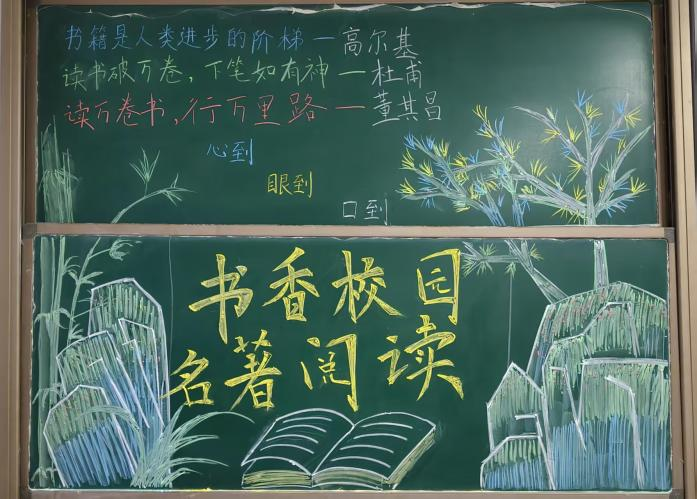 书籍是人类进步的阶梯—高尔基
读书破万卷，下笔如有神—杜甫
读万卷书，行万里路—董其昌
心到
眼到
口到
书香校园
名著阅读